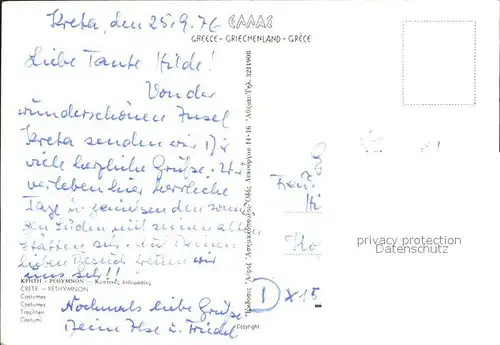 Kreta, den 25.9.76
ΕΛΛΑΣ
GREECE - GRIECHENLAND - GRÈCE
Liebe Tante Hilde!
Von der
wunderschönen Insel
Kreta senden wir Dir
viele herzliche Grüße. Wir
verleben hier herrliche
Tage u. geniesen den sonni-
gen Süden mit seinen alten
Stätten sehr. Auf Deinen
lieben Besuch freuen wir
uns sehr!!
ΚΡΗΤΗ - ΡΕΘΥΜΝΟΝ - Κρητικές ἐνδυμασίες
CRETE - RETHYMNON
Costumes
Costumes
Trachten
Costumi
Nochmals liebe Grüße
Deine Ilse u. Friedel
Copyright
14-16 Ἀθῆναι Τηλ. 3211908
Frau
Hi
Ko
privacy protection
Datenschutz
D X 15